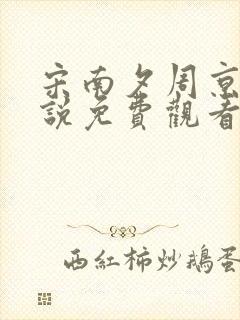 宋南夕周京
說免費觀看
西紅柿炒鵝蛋